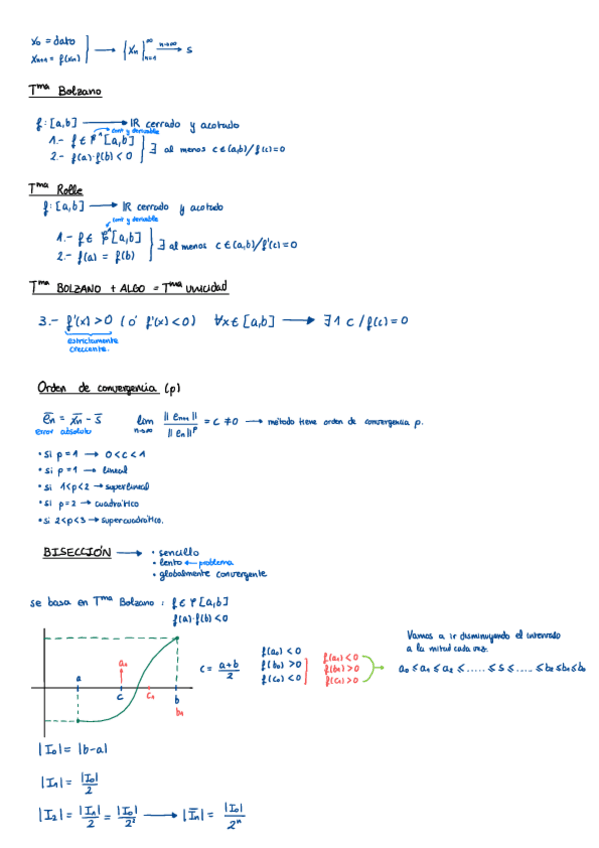 x₀ = dato
xₙ₊₁ = f(xₙ) } → {xₙ}ₙ₌₁^∞ →(n→∞) s
Tᵐᵃ Bolzano
f: [a,b] → IR cerrado y acotado
cont y derivable
1.- f ∈ C¹[a,b]
2.- f(a)·f(b) < 0 } ∃ al menos c ∈ (a,b) / f(c) = 0
Tᵐᵃ Rolle
f: [a,b] → IR cerrado y acotado
cont y derivable
1.- f ∈ C¹[a,b]
2.- f(a) = f(b) } ∃ al menos c ∈ (a,b) / f'(c) = 0
Tᵐᵃ BOLZANO + ALGO = Tᵐᵃ UNICIDAD
3.- f'(x) > 0 (o' f'(x) < 0) ∀x ∈ [a,b] → ∃ 1 c / f(c) = 0
estrictamente
creciente.
Orden de convergencia (p)
ēₙ = x̄ₙ - s̄ lim n→∞ ||eₙ₊₁|| / ||eₙ||ᵖ = c ≠ 0 → método tiene orden de convergencia p.
error absoluto
• si p = 1 → 0 < c < 1
• si p = 1 → lineal
• si 1 < p < 2 → superlineal
• si p = 2 → cuadrático
• si 2 < p < 3 → supercuadrático.
BISECCIÓN → • sencillo
• lento ← problema
• globalmente convergente
se basa en Tᵐᵃ Bolzano : f ∈ C[a,b]
f(a)·f(b) < 0
Vamos a ir disminuyendo el intervalo
a la mitad cada vez.
a a₁ c c₁ b b₁
c = (a+b)/2
f(a₀) < 0
f(b₀) > 0
f(c₀) < 0
f(a₁) < 0
f(b₁) > 0
f(c₁) > 0
a₀ ≤ a₁ ≤ a₂ ≤ ...... ≤ s ≤ ..... ≤ b₂ ≤ b₁ ≤ b₀
|I₀| = |b-a|
|I₁| = |I₀|/2
|I₂| = |I₁|/2 = |I₀|/2² → |Īₙ| = |I₀|/2ⁿ